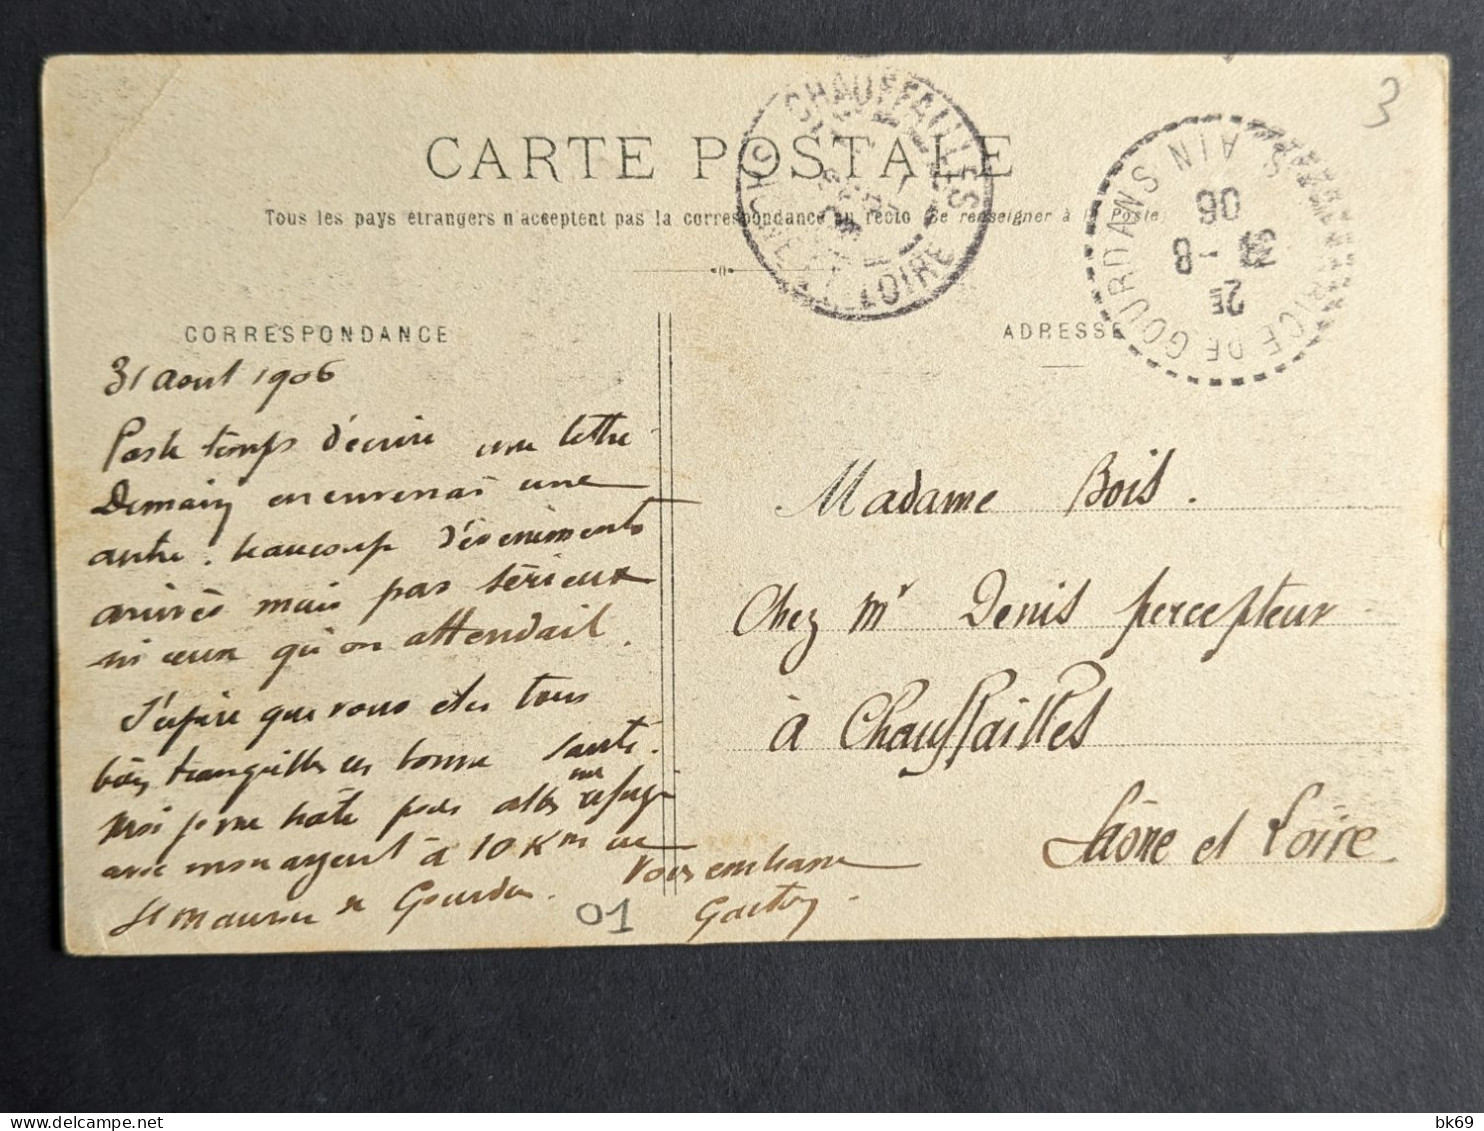 3
CARTE POSTALE
Tous les pays étrangers n'acceptent pas la correspondance au recto (Se renseigner à la Poste)
CHAUFFAILLES
SAÔNE-ET-LOIRE
ST MAURICE DE GOURDANS AIN
2E
31 - 8
06
CORRESPONDANCE
ADRESSE
31 aout 1906
Pas le temps d'écrire une lettre
Demain en enverrai une
autre. beaucoup d'évènements
arrivés mais pas sérieux
ni ceux qu'on attendait.
J'espère que vous etes tous
bien tranquilles en bonne santé.
Moi je me hâte pour aller me
avec mon argent à 10 Km
St Maurice de Gourdan. Vous embrasse
Gaston.
01
Madame Bois.
Chez Mr Denis percepteur
à Chauffailles
Saône et Loire
bk69